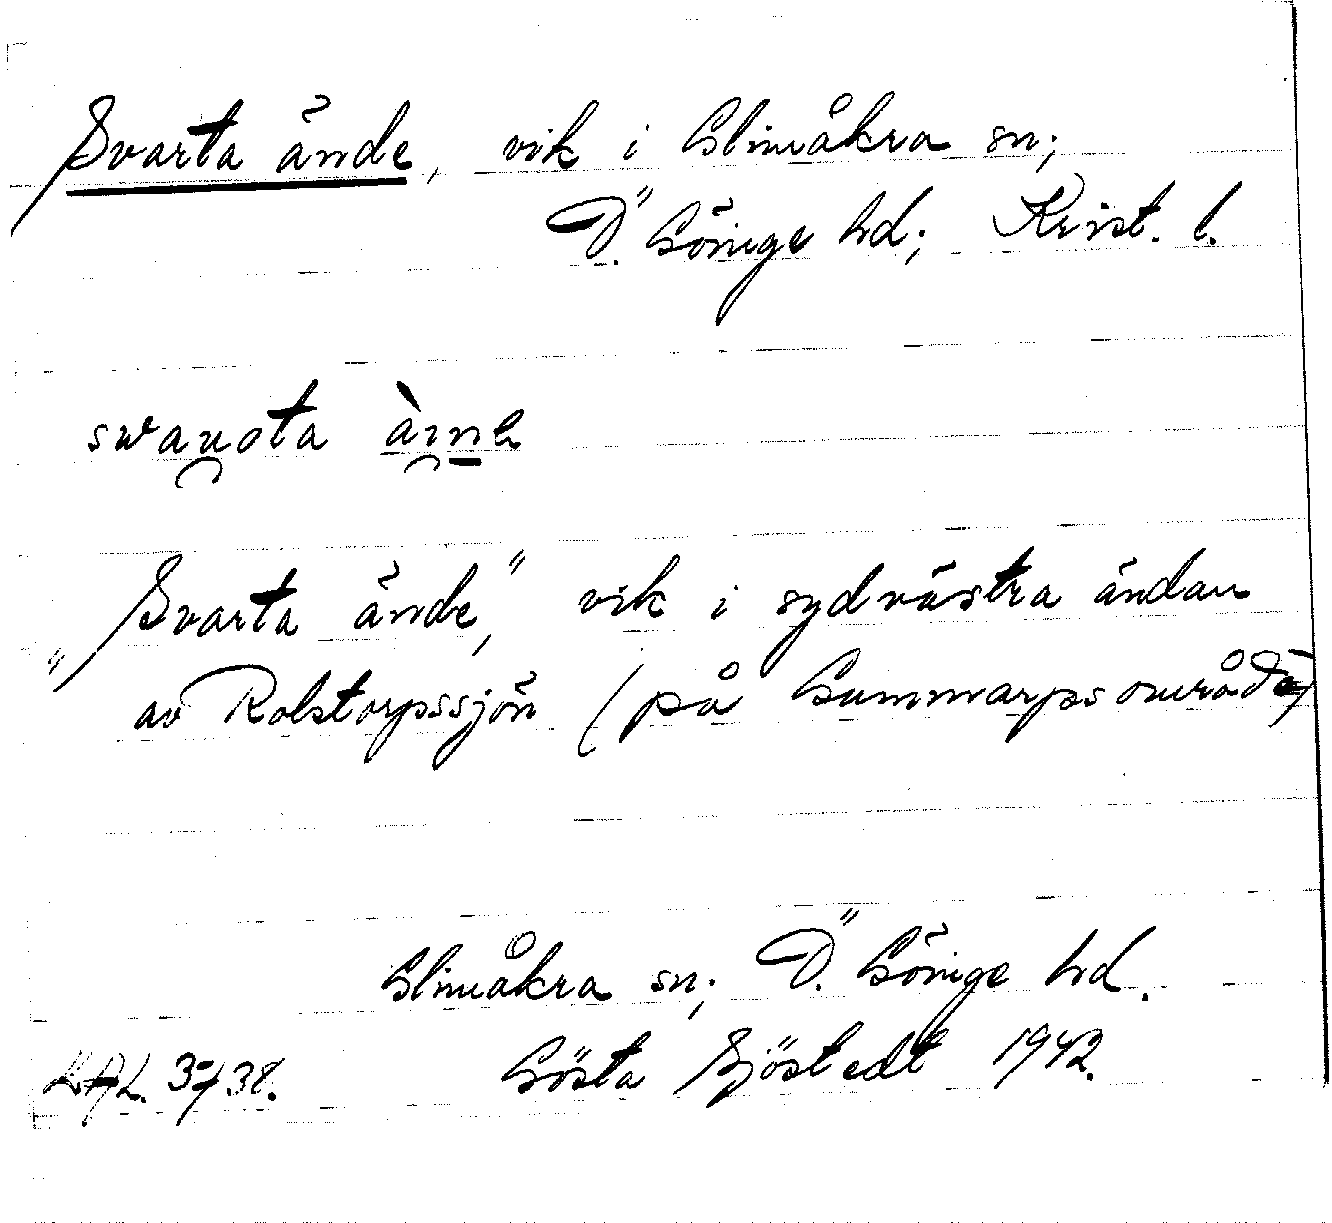 Svarta ände, vik i Glimåkra sn;
Ö. Göinge hd; Krist. l.
"Svarta ände," vik i sydvästra ändan
av Rolstorpssjön (på Gummarpsområde)
Glimåkra sn; Ö. Göinge hd.
Gösta Sjöstedt 1942.